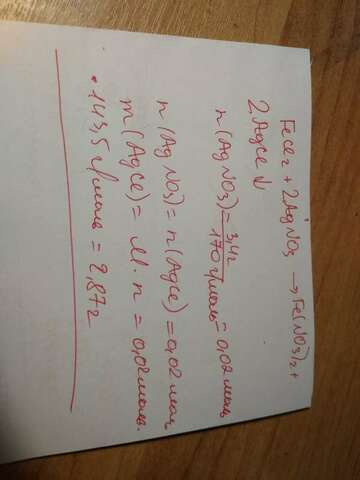 FeCl2 + 2AgNO3 → Fe(NO3)2 +
2AgCl ↓
n(AgNO3) = 3,4г / 170 г/моль = 0,02 моль
n(AgNO3) = n(AgCl) = 0,02 моль
m(AgCl) = M · n = 0,02 моль ·
· 143,5 г/моль = 2,87 г